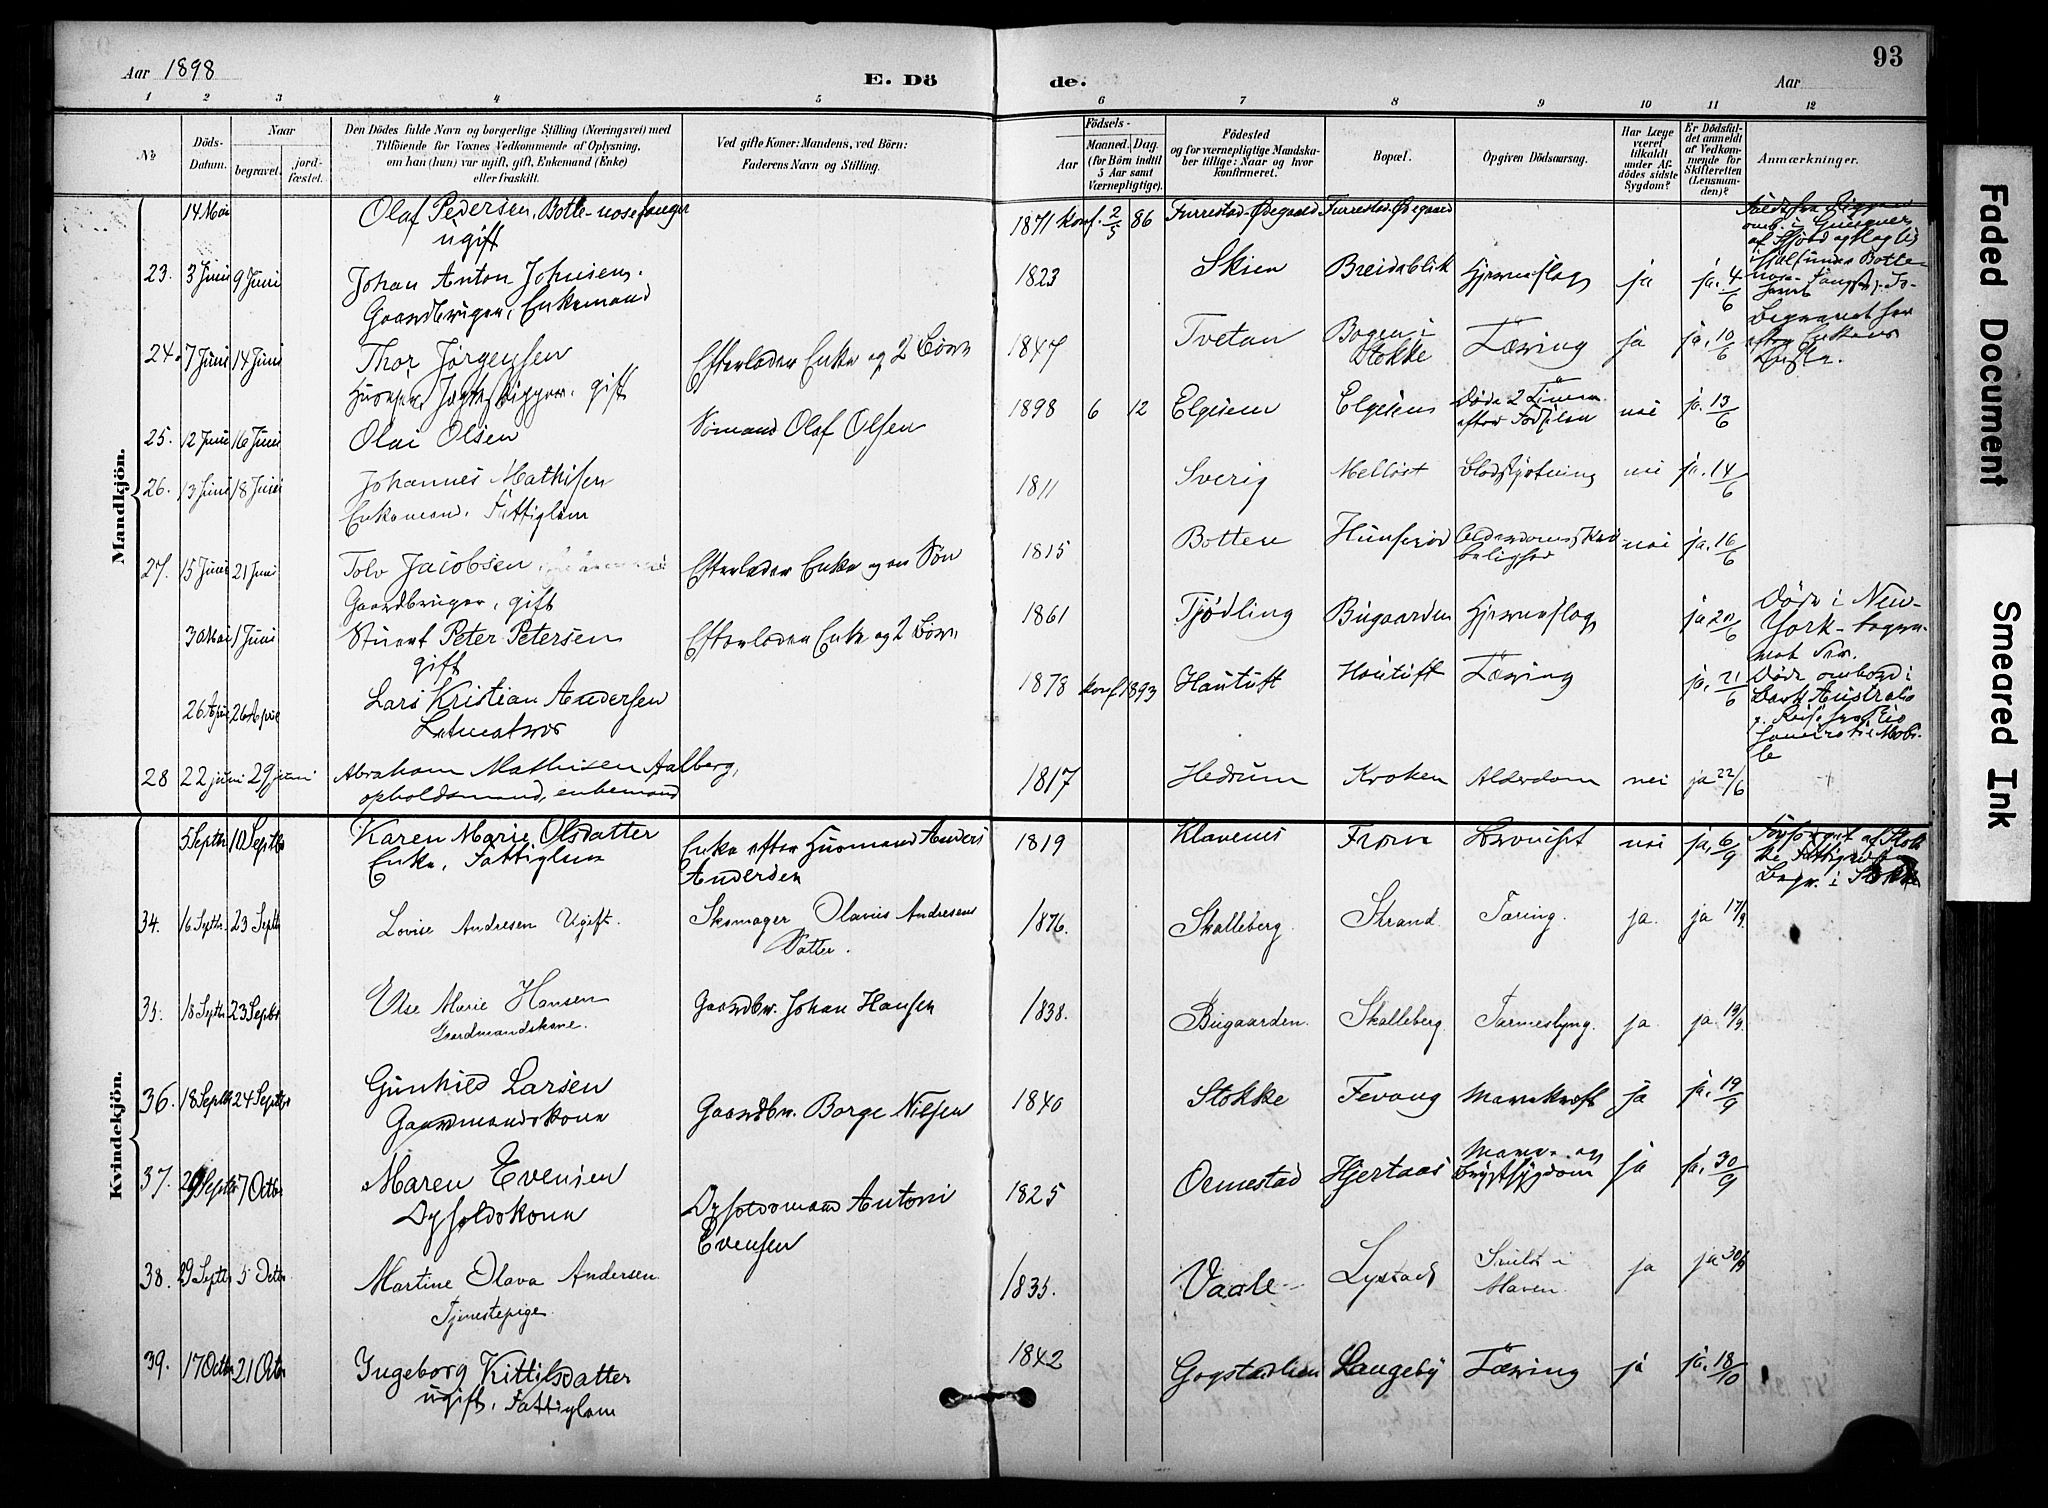 93
Aar 1898 E. Dö de. Aar
1 2 3 4 5 6 7 8 9 10 11 12
№ Döds-Datum. Naar begravet. jordfæstet. Den Dödes fulde Navn og borgerlige Stilling (Næringsvei) med Tilföiende for Voxnes Vedkommende af Oplysning, om han (hun) var ugift, gift, Enkemand (Enke) eller fraskilt. Ved gifte Koner: Mandens, ved Börn: Faderens Navn og Stilling. Födsels- Aar Maaned. Dag. (for Börn indtil 5 Aar samt Værnepligtige). Födested og for værnepligtige Mandskaber tillige: Naar og hvor konfirmeret. Bopæl. Opgiven Dödsaarsag. Har Læge været tilkaldt under Afdödes sidste Sygdom? Er Dödsfaldet anmeldt af Vedkommende for Skifteretten (Lensmanden)? Anmærkninger.
Mandkjön.
14 Mai Olaf Pedersen, Bottle-nosefanger 1871 konf. 2/5 86 Furrestad-Ødegaard Furrestad-Ødegaard
ugift
23. 3 Juni 9 Juni Johan Anton Johnsen. 1823 Skien Breidablik Hjerneslag ja ja. 4/6
Gaardbruger, Enkemand
24. 7 Juni 14 Juni Thor Jørgensen Efterlader Enke og 2 Børn 1847 Tvetan Bogen i Stokke Tæring ja ja, 10/6
gift
25. 12 Juni 16 Juni Olai Olsen Sømand Olaf Olsen 1898 6 12 Elgesem Elgesem Døde 2 Timer efter Fødselen nei ja. 13/6
26. 13 Juni 18 Juni Johannes Mathisen 1811 Sverig Melløst nei ja. 14/6
Enkemand. Fattiglem
27. 15 Juni 21 Juni Tolv Jacobsen Efterlader Enke og en Søn 1815 Botten Hunsrød nei ja. 16/6
Gaardbruger, gift
30 Mai 1 Juni Stuert Peter Petersen Efterlader Enke og 2 Børn 1861 Tjødling Bugaarden Hjerneslag ja 20/6 Døde i New-York - begravet der.
gift
26 April 26 April Lars Kristian Andersen 1878 konf. 1893 Hautuft Hautuft Tæring ja, 21/6 Døde ombord i Bark Australia
Letmatros
28 22 juni 29 juni Abraham Mathisen Aalberg, 1817 Hedrum Kroken Alderdom nei ja 22/6
opholdsmand, enkemand
Kvindekjön.
5 Septbr 10 Septbr Karen Marie Olsdatter Enke efter Husmand Anders Andersen 1819 Klavenes nei ja, 6/9 Forsørget af Stokke Fattigvæsen Begr. i Stokke
Enke, Fattiglem
34. 16 Septbr. 23 Septb Lovise Andresen Ugift. Skomager Olavus Andresens Datter. 1876. Skalleberg. Strand. Tæring. ja. ja 17/9.
35. 18 Septbr 23 Septbr Else Marie Hansen Gaardbr. Johan Hansen 1838. Bugaarden. Skalleberg. Tarmeslyng. ja. ja. 19/9.
Gaardmandskone.
36. 18 Septbr 24 Septbr Gunhild Larsen Gaardbr. Børge Nilsen 1840 Stokke Fevang Mavekræft ja ja, 19/9
Gaardmandskone
37. 29 Septbr 7 Octbr Maren Evensen Opholdsmand Antoni Evensen 1825 Ormestad Hjertaas Mave- og Brystsygdom ja ja, 30/9
Opholdskone
38. 29 Septbr 5 Octbr Martine Olava Andersen. 1835. Vaale Lystad Svulst i Maven. ja ja 30/9
Tjenestepige
39. 17 Octbr 21 Octbr Ingeborg Kittilsdatter 1842 Gogstadlien Langeby Tæring ja ja, 18/10
ugift, Fattiglem
Faded Document
Smeared Ink